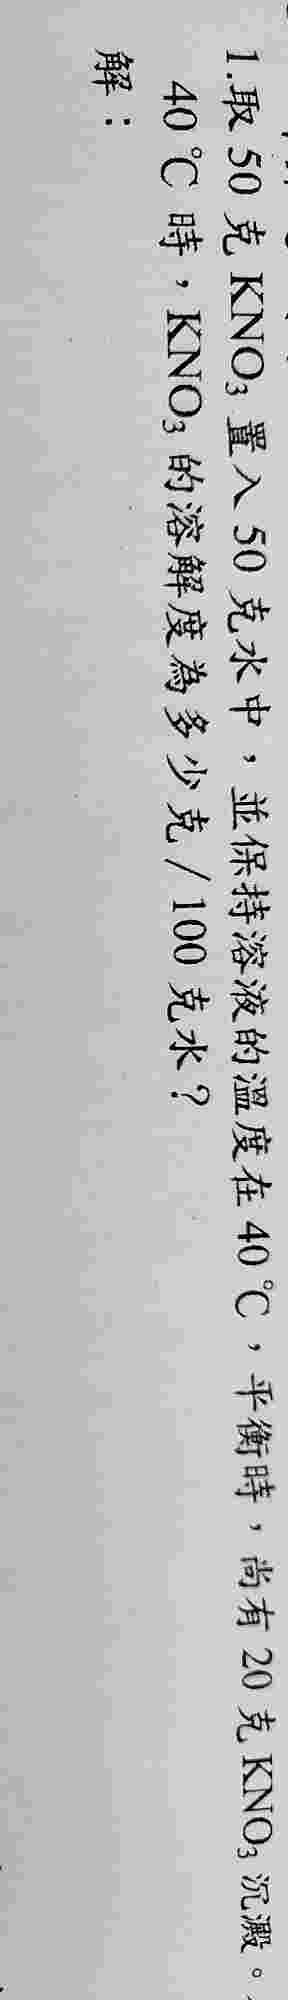 1.取 50 克 KNO₃ 置入 50 克水中，並保持溶液的溫度在 40 ℃，平衡時，尚有 20 克 KNO₃ 沉澱。
40 ℃ 時，KNO₃ 的溶解度為多少克 / 100 克水？
解：